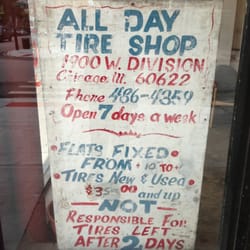 ALL DAY
TIRE SHOP
1900 W. DIVISION
Chicago, Ill. 60622
Phone 486-4359
Open 7 days a week
FLATS FIXED
FROM
TIRES New & Used
and up
NOT
RESPONSIBLE FOR
TIRES LEFT
AFTER 2 DAYS